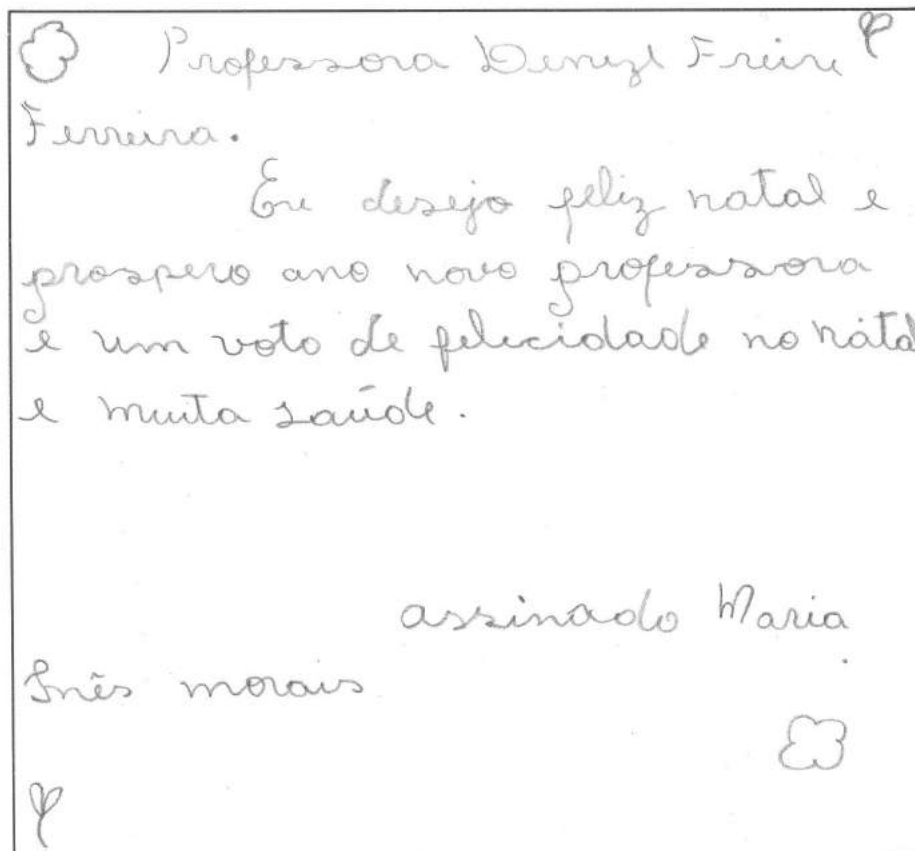 Professora Denize Freire
Ferreira.
Eu desejo feliz natal e
prospero ano novo professora
e um voto de felicidade no natal
e muita saúde.
assinado Maria
Inês morais